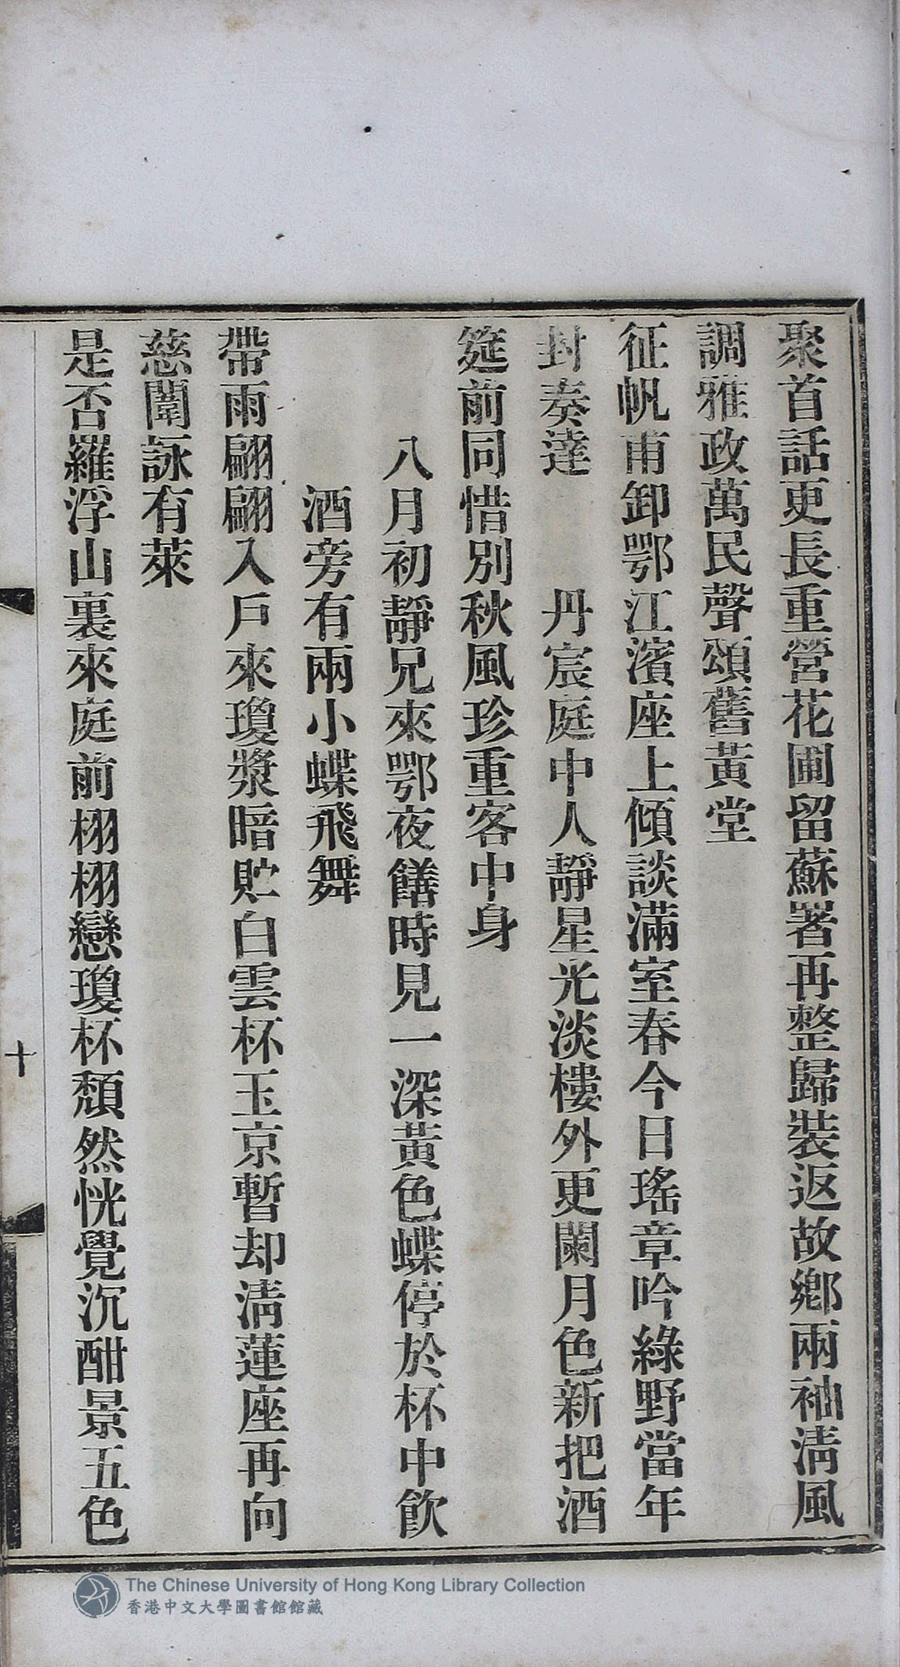 聚首話更長重營花圃留蘇署再整歸裝返故鄉兩袖淸風
調雅政萬民聲頌舊黃堂
征帆甫卸鄂江濱座上傾談滿室春今日瑤章吟綠野當年
封奏達　丹宸庭中人靜星光淡樓外更闌月色新把酒
筵前同惜別秋風珍重客中身
八月初靜兄來鄂夜饍時見一深黃色蝶停於杯中飮
酒旁有兩小蝶飛舞
帶雨翩翩入戶來瓊漿暗貯白雲杯玉京暫却淸蓮座再向
慈闈詠有萊
是否羅浮山裏來庭前栩栩戀瓊杯頹然恍覺沉酣景五色
十
The Chinese University of Hong Kong Library Collection
香港中文大學圖書館館藏